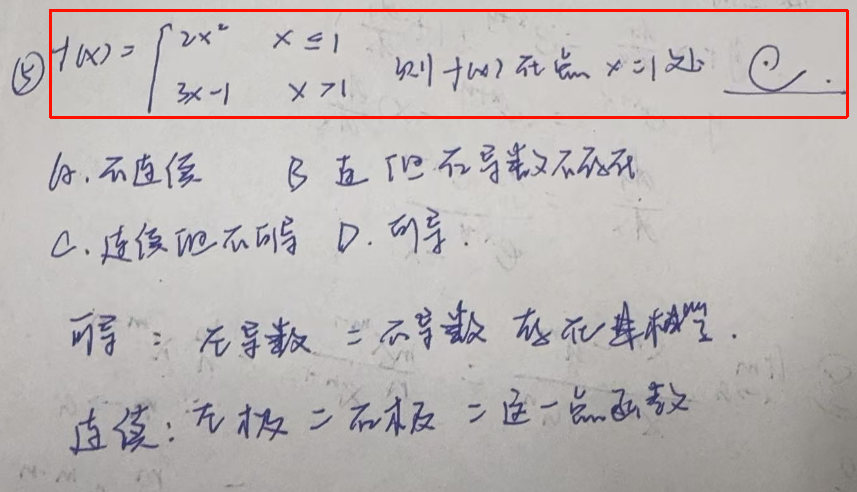 ⑤ f(x) = { 2x² x ≤ 1
3x-1 x > 1 则 f(x) 在点 x=1 处 C.
A. 不连续 B 连 但右导数不存在
C. 连续但不可导 D. 可导.
可导: 左导数 = 右导数 存在且相等.
连续: 左极 = 右极 = 这一点函数